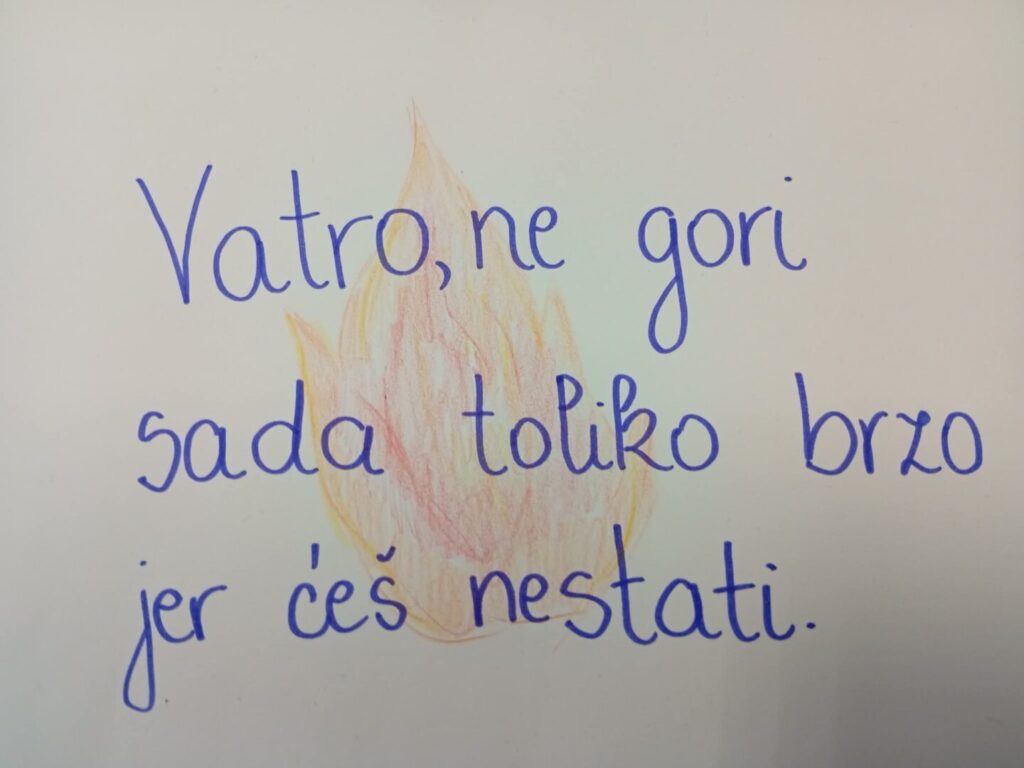 Vatro, ne gori
sada toliko brzo
jer ćeš nestati.